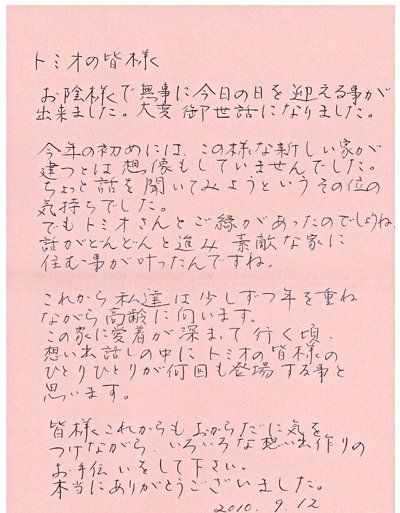 トミオの皆様
お陰様で無事に今日の日を迎える事が
出来ました。大変御世話になりました。
今年の初めには、この様な新しい家が
建つとは想像もしていませんでした。
ちょっと話を聞いてみようというその位の
気持ちでした。
でもトミオさんとご縁があったのでしょうね、
話がどんどんと進み素敵な家に
住む事が叶ったんですね。
これから私達は少しずつ年を重ね
ながら高齢に向います。
この家に愛着が深まって行く頃、
想い出話しの中にトミオの皆様の
ひとりひとりが何回も登場する事と
思います。
皆様これからもおからだに気を
つけながら、いろいろな想い出作りの
お手伝いをして下さい。
本当にありがとうございました。
2010. 9. 12